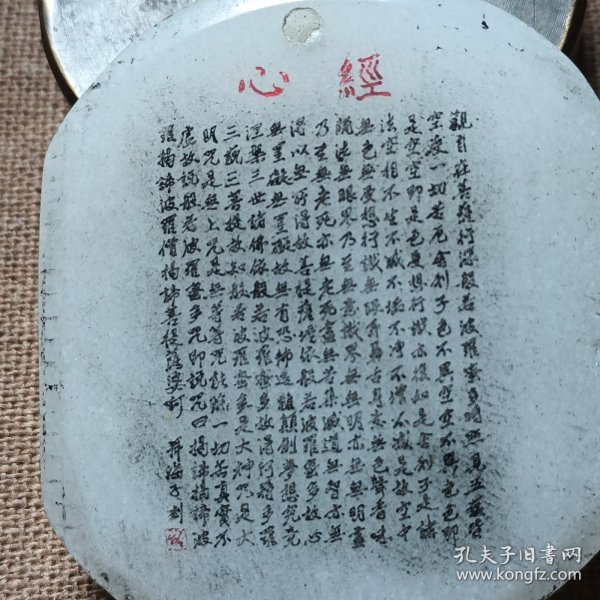 心經
觀自在菩薩行深般若波羅蜜多時照見五蘊皆
空度一切苦厄舍利子色不異空空不異色色即
是空空即是色受想行識亦復如是舍利子是諸
法空相不生不滅不垢不淨不增不減是故空中
無色無受想行識無眼耳鼻舌身意無色聲香味
觸法無眼界乃至無意識界無無明亦無無明盡
乃至無老死亦無老死盡無苦集滅道無智亦無
得以無所得故菩提薩埵依般若波羅蜜多故心
無罣礙無罣礙故無有恐怖遠離顛倒夢想究竟
涅槃三世諸佛依般若波羅蜜多故得阿耨多羅
三藐三菩提故知般若波羅蜜多是大神咒是大
明咒是無上咒是無等等咒能除一切苦真實不
虛故說般若波羅蜜多咒即說咒曰揭諦揭諦波
羅揭諦波羅僧揭諦菩提薩婆訶
孔夫子旧书网
www.kongfz.com